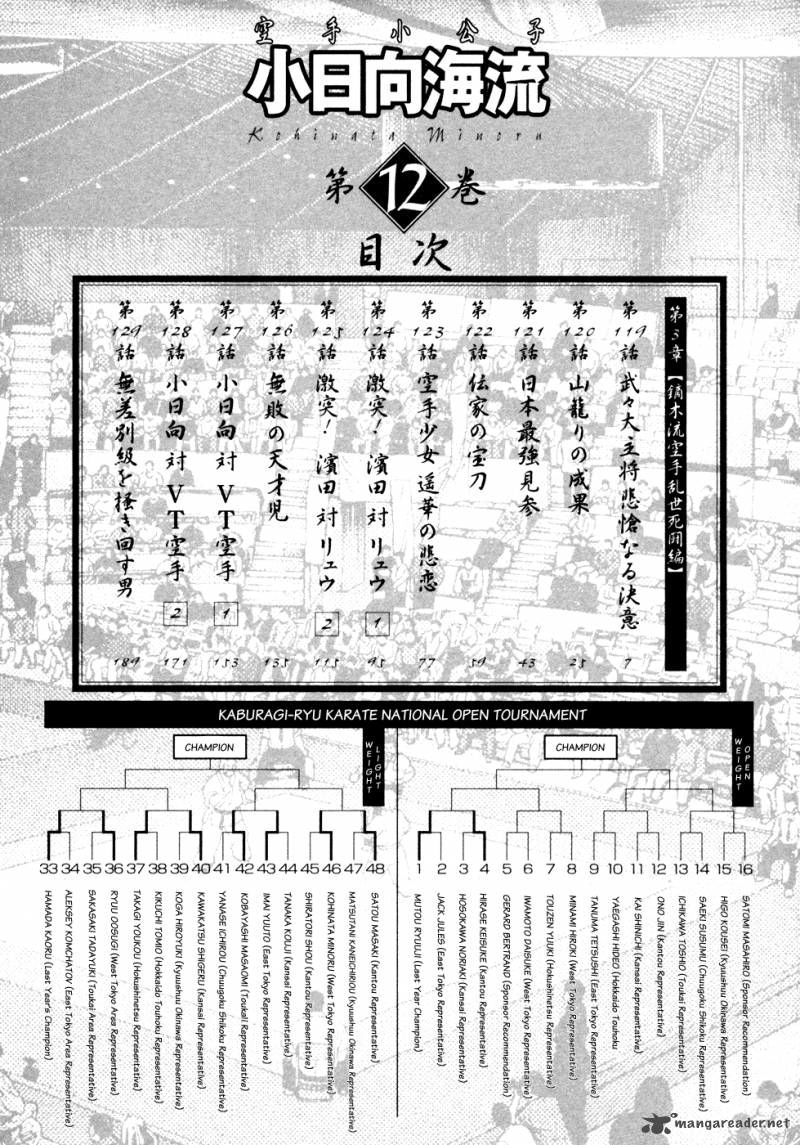 空手小公子
小日向海流
Kohinata Minoru
第12巻
目次
第3章【鏑木流空手乱世死闘編】
第119話 武々大主将悲愴なる決意 7
第120話 山籠りの成果 25
第121話 日本最強見参 43
第122話 伝家の宝刀 59
第123話 空手少女 遥華の悲恋 77
第124話 激突! 濱田 対 リュウ 1 95
第125話 激突! 濱田 対 リュウ 2 115
第126話 無敗の天才児 135
第127話 小日向 対 VT空手 1 153
第128話 小日向 対 VT空手 2 171
第129話 無差別級を掻き回す男 189
KABURAGI-RYU KARATE NATIONAL OPEN TOURNAMENT
CHAMPION
LIGHT WEIGHT
33 HAMADA KAORU (Last Year's Champion)
34 ALEKSEY KOMCHATOV (East Tokyo Area Representative)
35 SAKASAKI TADAYUKI (Toukai Area Representative)
36 RYUU OOSUGI (West Tokyo Area Representative)
37 TAKAGI YOUKOU (Hokushinetsu Representative)
38 KIKUCHI TOMIO (Hokkaido Touhoku Representative)
39 KOGA HIROYUKI (Kyuushuu Okinawa Representative)
40 KAWAKATSU SHIGERU (Kansai Representative)
41 YANASE ICHIROU (Chuugoku Shikoku Representative)
42 KOBAYASHI MASAOMI (Toukai Representative)
43 IMAI YUUTO (East Tokyo Representative)
44 TANAKA KOUJI (Kansai Representative)
45 SHIRATORI SHOU (Kantou Representative)
46 KOHINATA MINORU (West Tokyo Representative)
47 MATSUTANI KANEICHIROU (Kyuushuu Okinawa Representative)
48 SATOU MASAKI (Kantou Representative)
CHAMPION
OPEN WEIGHT
1 MUTOU RYUUJI (Last Year Champion)
2 JACK JULES (East Tokyo Representative)
3 HOSOKAWA NORIAKI (Kansai Representative)
4 HIRASE KEISUKE (Kantou Representative)
5 GERARD BERTRAND (Sponsor Recommendation)
6 IWAMOTO DAISUKE (West Tokyo Representative)
7 TOUZEN YUUKI (Hokushinetsu Representative)
8 MINAMI HIROKI (West Tokyo Representative)
9 TANIJMA TETSUSHI (East Tokyo Representative)
10 YAEGASHI HIDEO (Hokkaido Touhoku
11 KAI SHINICHI (Kansai Representative)
12 ONO JIN (Kantou Representative)
13 ICHIKAWA TOSHIO (Toukai Representative)
14 SAEKI SUSUMU (Chuugoku Shikoku Representative)
15 HIGO KOUSEI (Kyuushuu Okinawa Representative)
16 SATOMI MASAHIRO (Sponsor Recommendation)
mangareader.net